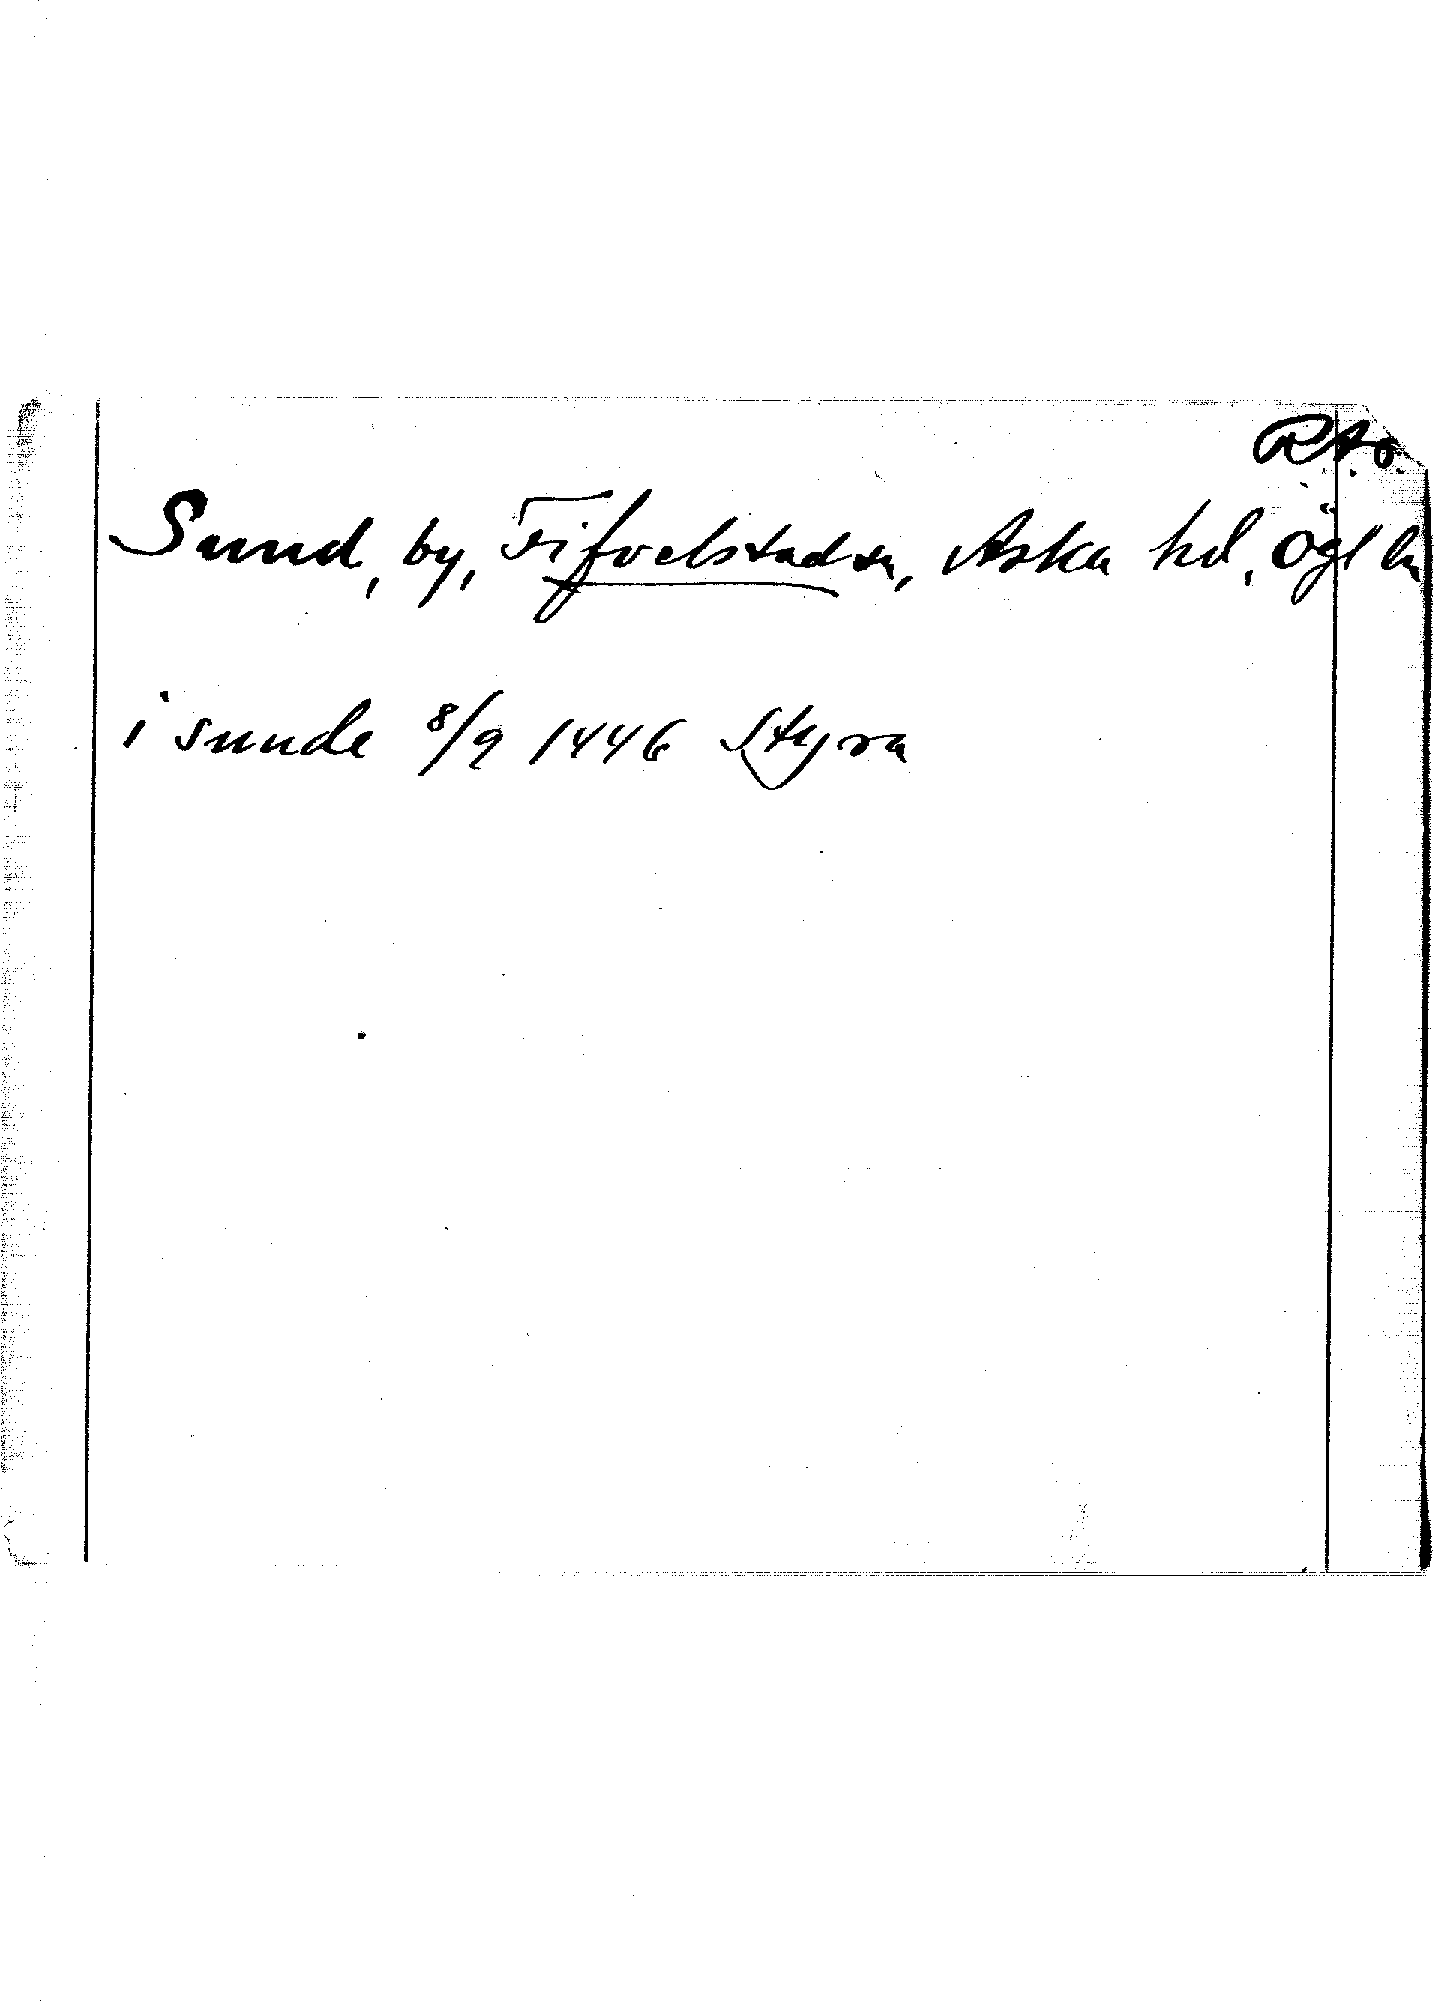 R.A.ö.
Sund, by, Fifvelstad sn, Aska hd, Ögl ln
i sunde 8/9 1446 Styra